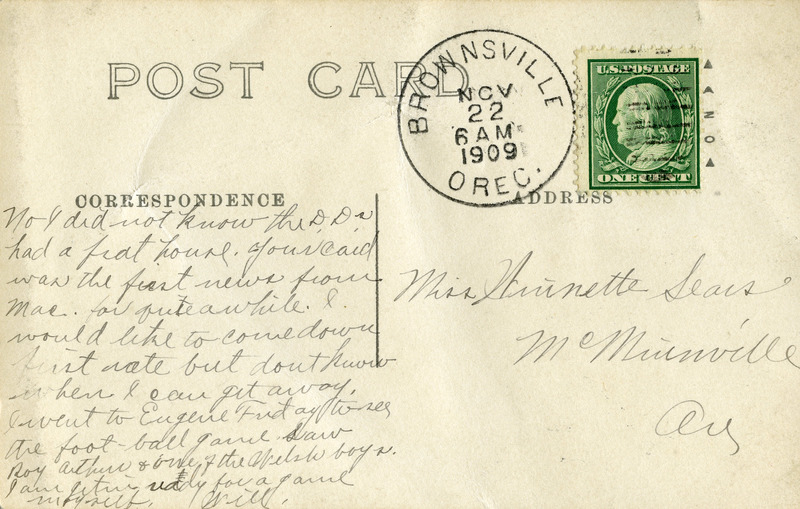 POST CARD
BROWNSVILLE
NOV
22
6 AM
1909
OREG.
U.S. POSTAGE
ONE CENT
CORRESPONDENCE
ADDRESS
No I did not know the D.D.s
had a frat house. Your card
was the first news from
Mac. for quite awhile. I
would like to come down
first rate but dont know
when I can get away.
I went to Eugene Friday to see
the foot-ball game. Saw
Roy Arthur & one of the Welsh boys.
I am gettin ready for a game
myself. Will.
Miss Winnette Sears
McMinnville
Ore